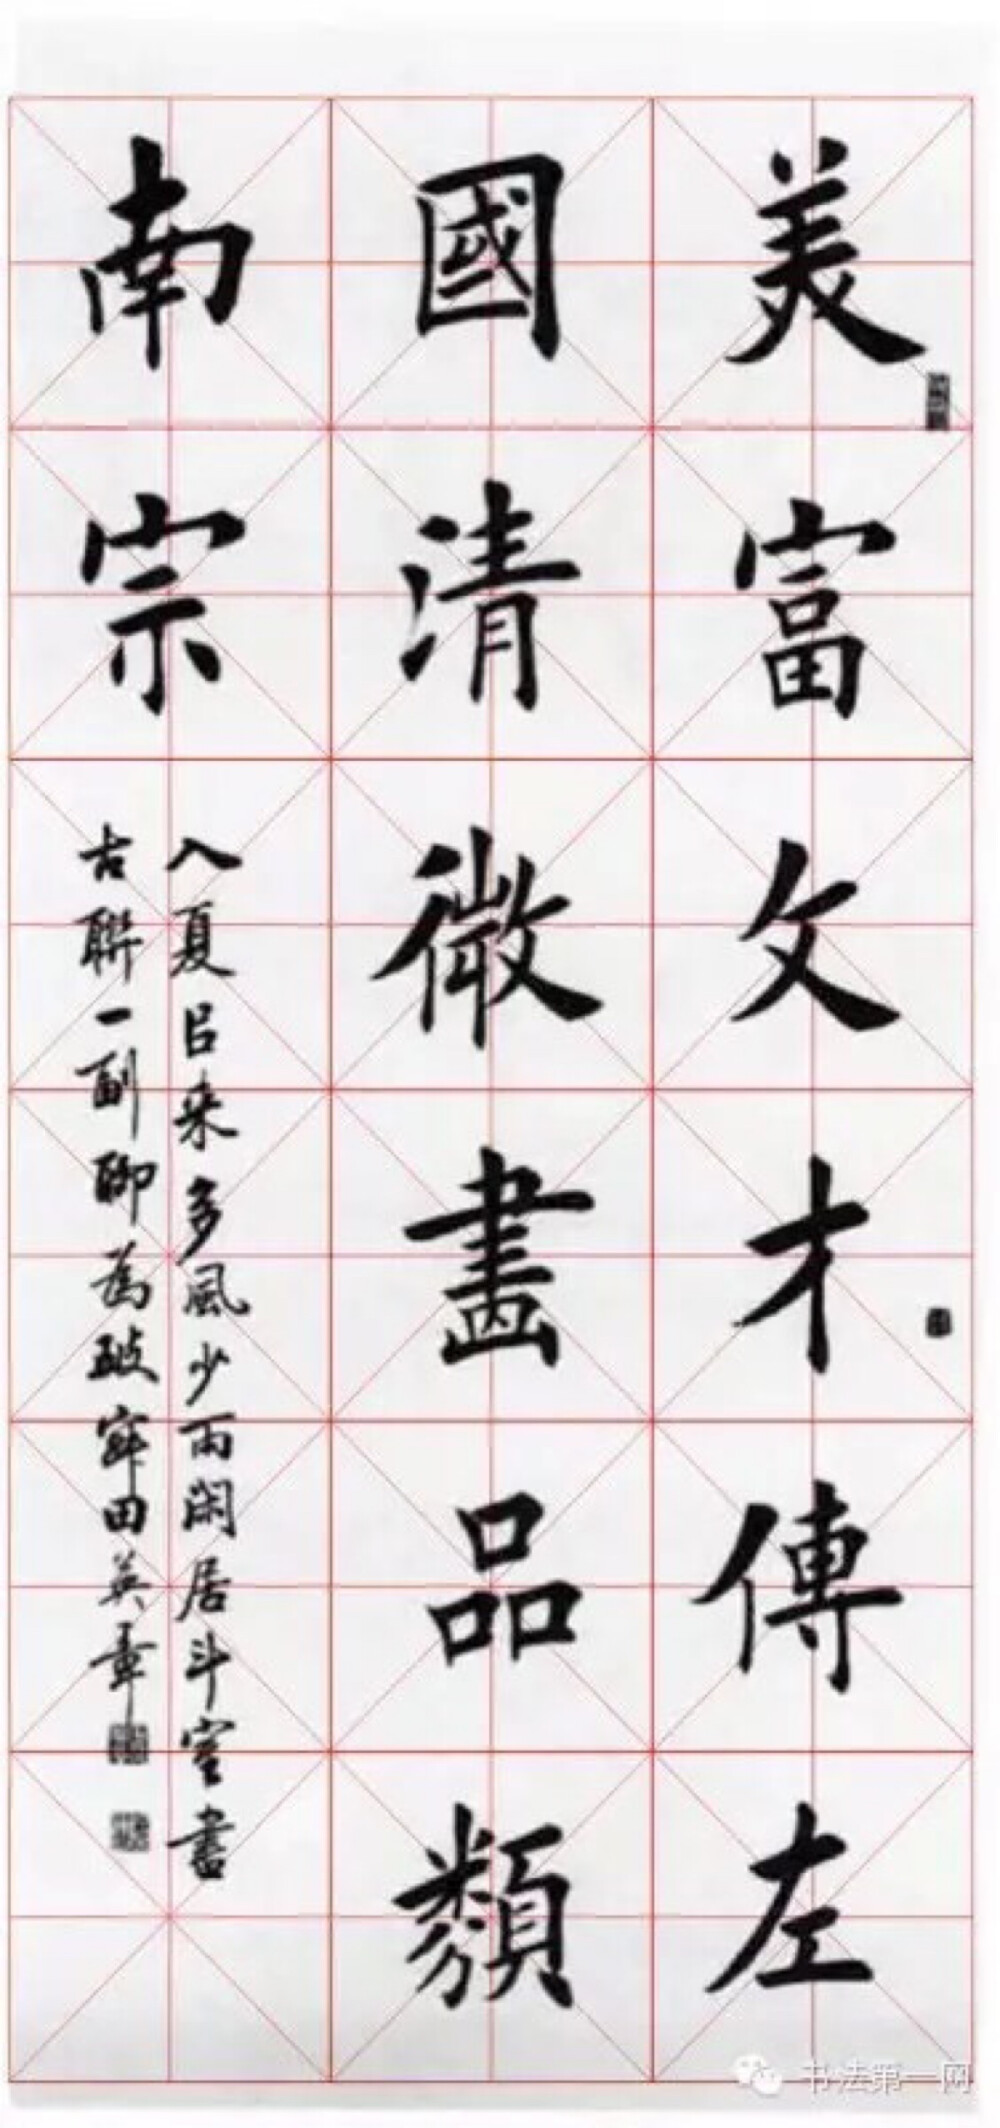 美富文才傳左
國清微畫品類
南宗
入夏吕来多風少雨閑居斗室書
古聯一副聊為破寂田英章
书法第一网